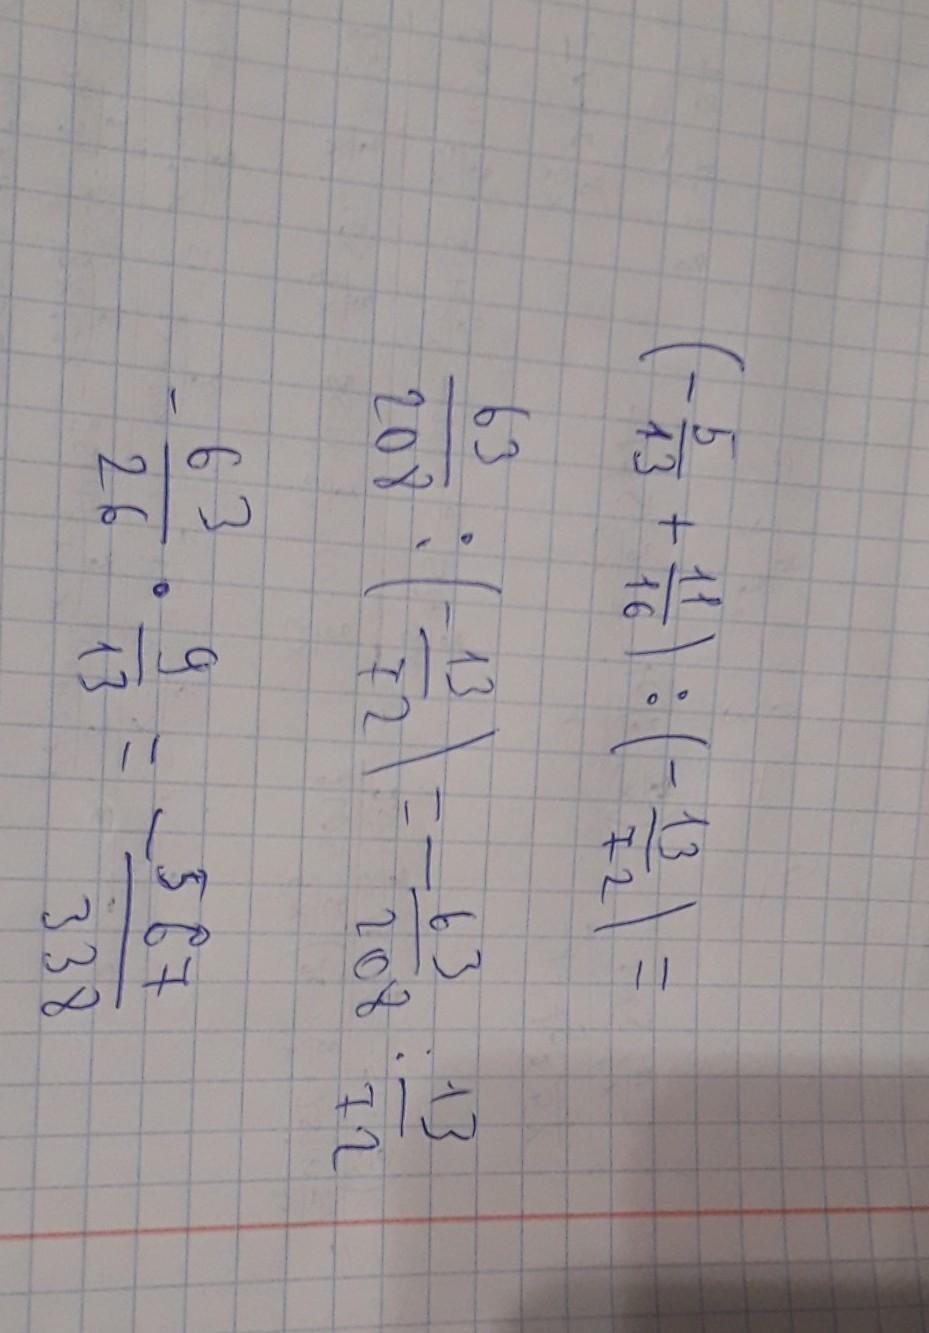 (-5/13 + 11/16) : (-13/72) =
63/208 : (-13/72) = -63/208 : 13/72
-63/26 · 9/13 = -567/338